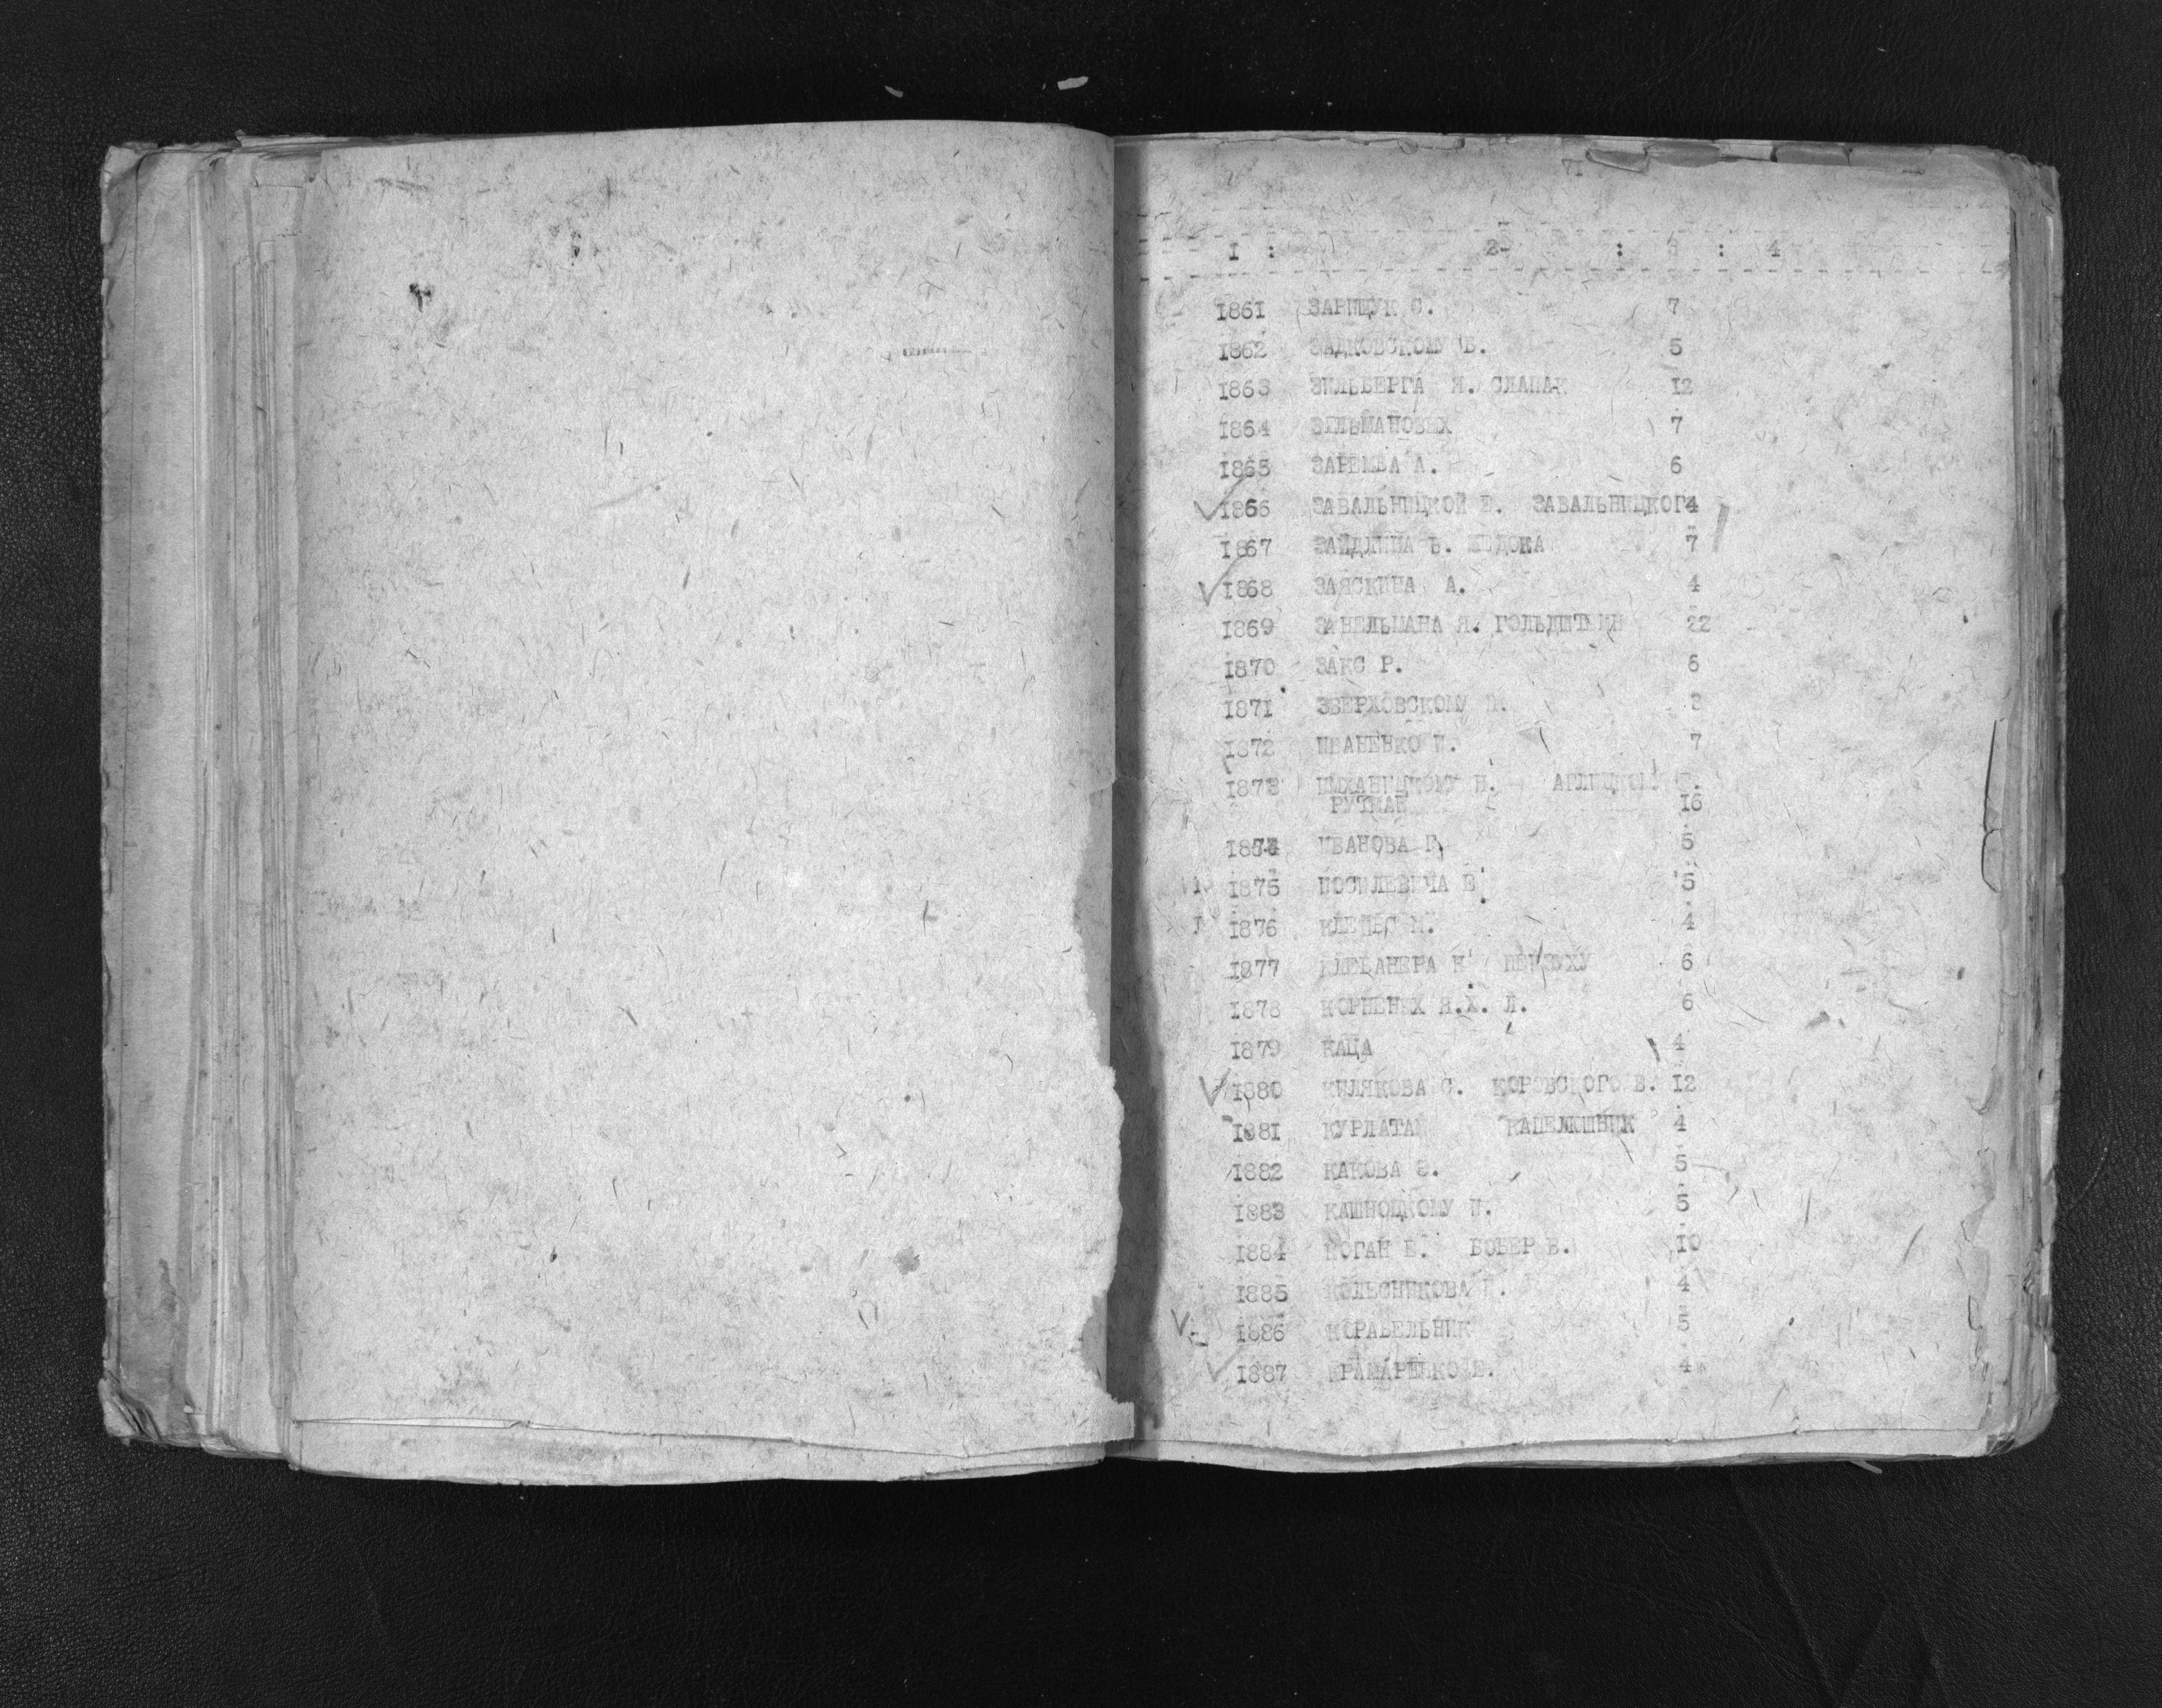 71
I : 2 : 3 : 4
1861 ЗАРИЩУК С. 7
1862 ЗАДКОВСКОМУ Б. 5
1863 ЗИЛЬБЕРГА Я. СЛАПАК 12
1864 ЗИЛЬМАНОВЫХ 7
1865 ЗАРЕМБА А. 6
1866 ЗАВАЛЬНИЦКОЙ Е. ЗАВАЛЬНИЦКОГ4
1867 ЗАЙДЛИНА 7
1868 ЗАЯСКИНА А. 4
1869 ЗАНЕЛЬМАНА Я. 22
1870 ЗАКС Р. 6
1871 ЗВЕРХОВСКОМУ 3
1872 ИВАНЕНКО И. 7
1873 Н.
РУТМАН 16
1874 ИВАНОВА Г. 5
1875 ИОСИЛЕВИЧА Е. 5
1876 М. 4
1877 6
1878 КОРНЕВЫХ Я.Х. Л. 6
1879 КАЦА 4
1880 КИЛЯКОВА С. КОРОВСКОГО В. 12
1881 КУРЛАТА КАПЕЛЮШНИК 4
1882 КАКОВА 5
1883 КАШНОЦКОМУ И. 5
1884 КОГАН Е. БОБЕР В. 10
1885 КОЛЕСНИКОВА 4
1886 КОРАБЕЛЬНИК 5
1887 КРАМАРЕНКО Е. 4